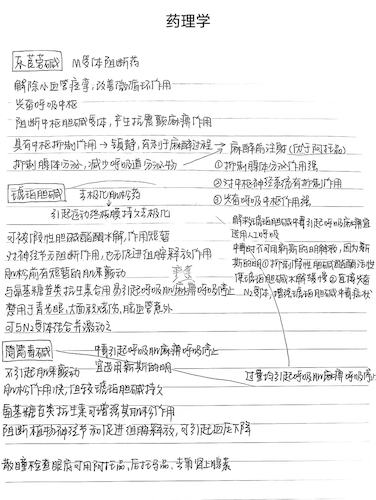 药理学
东莨菪碱 M受体阻断药
解除小血管痉挛,改善微循环作用
兴奋呼吸中枢
阻断中枢胆碱受体,产生抗震颤麻痹作用
具有中枢抑制作用→镇静,有利于麻醉过程
抑制腺体分泌,减少呼吸道分泌物
麻醉前注射(优于阿托品)
①抑制腺体分泌作用强
②对中枢神经系统有抑制作用
③兴奋呼吸中枢作用强
琥珀胆碱 去极化肌松药
引起运动终板膜持久去极化
可被假性胆碱酯酶水解,作用短暂
对神经节无阻断作用,也无促进组胺释放作用
肌松前有短暂的肌束颤动
与氨基糖苷类抗生素合用易引起呼吸肌麻痹呼吸停止
禁用于青光眼,大面积烧伤,脑血管意外
可与N2受体结合并激动之
解救琥珀胆碱中毒引起呼吸麻痹宜
选用人工呼吸
中毒时不可用新斯的明解救,因为新
斯的明①抑制假性胆碱酯酶活性
使琥珀胆碱水解减慢②直接兴奋
N2受体,增强琥珀胆碱中毒症状
筒箭毒碱 中毒引起呼吸肌麻痹呼吸停止
宜选用新斯的明
过量均引起呼吸肌麻痹呼吸停止
不引起肌束颤动
肌松作用快,但较琥珀胆碱持久
氨基糖苷类抗生素可增强其肌松作用
阻断植物神经节和促进组胺释放,可引起血压下降
散瞳检查眼底可用阿托品,后托马品,去氧肾上腺素